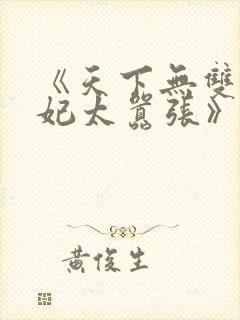 《天下無雙
妃太囂張》
黃俊生